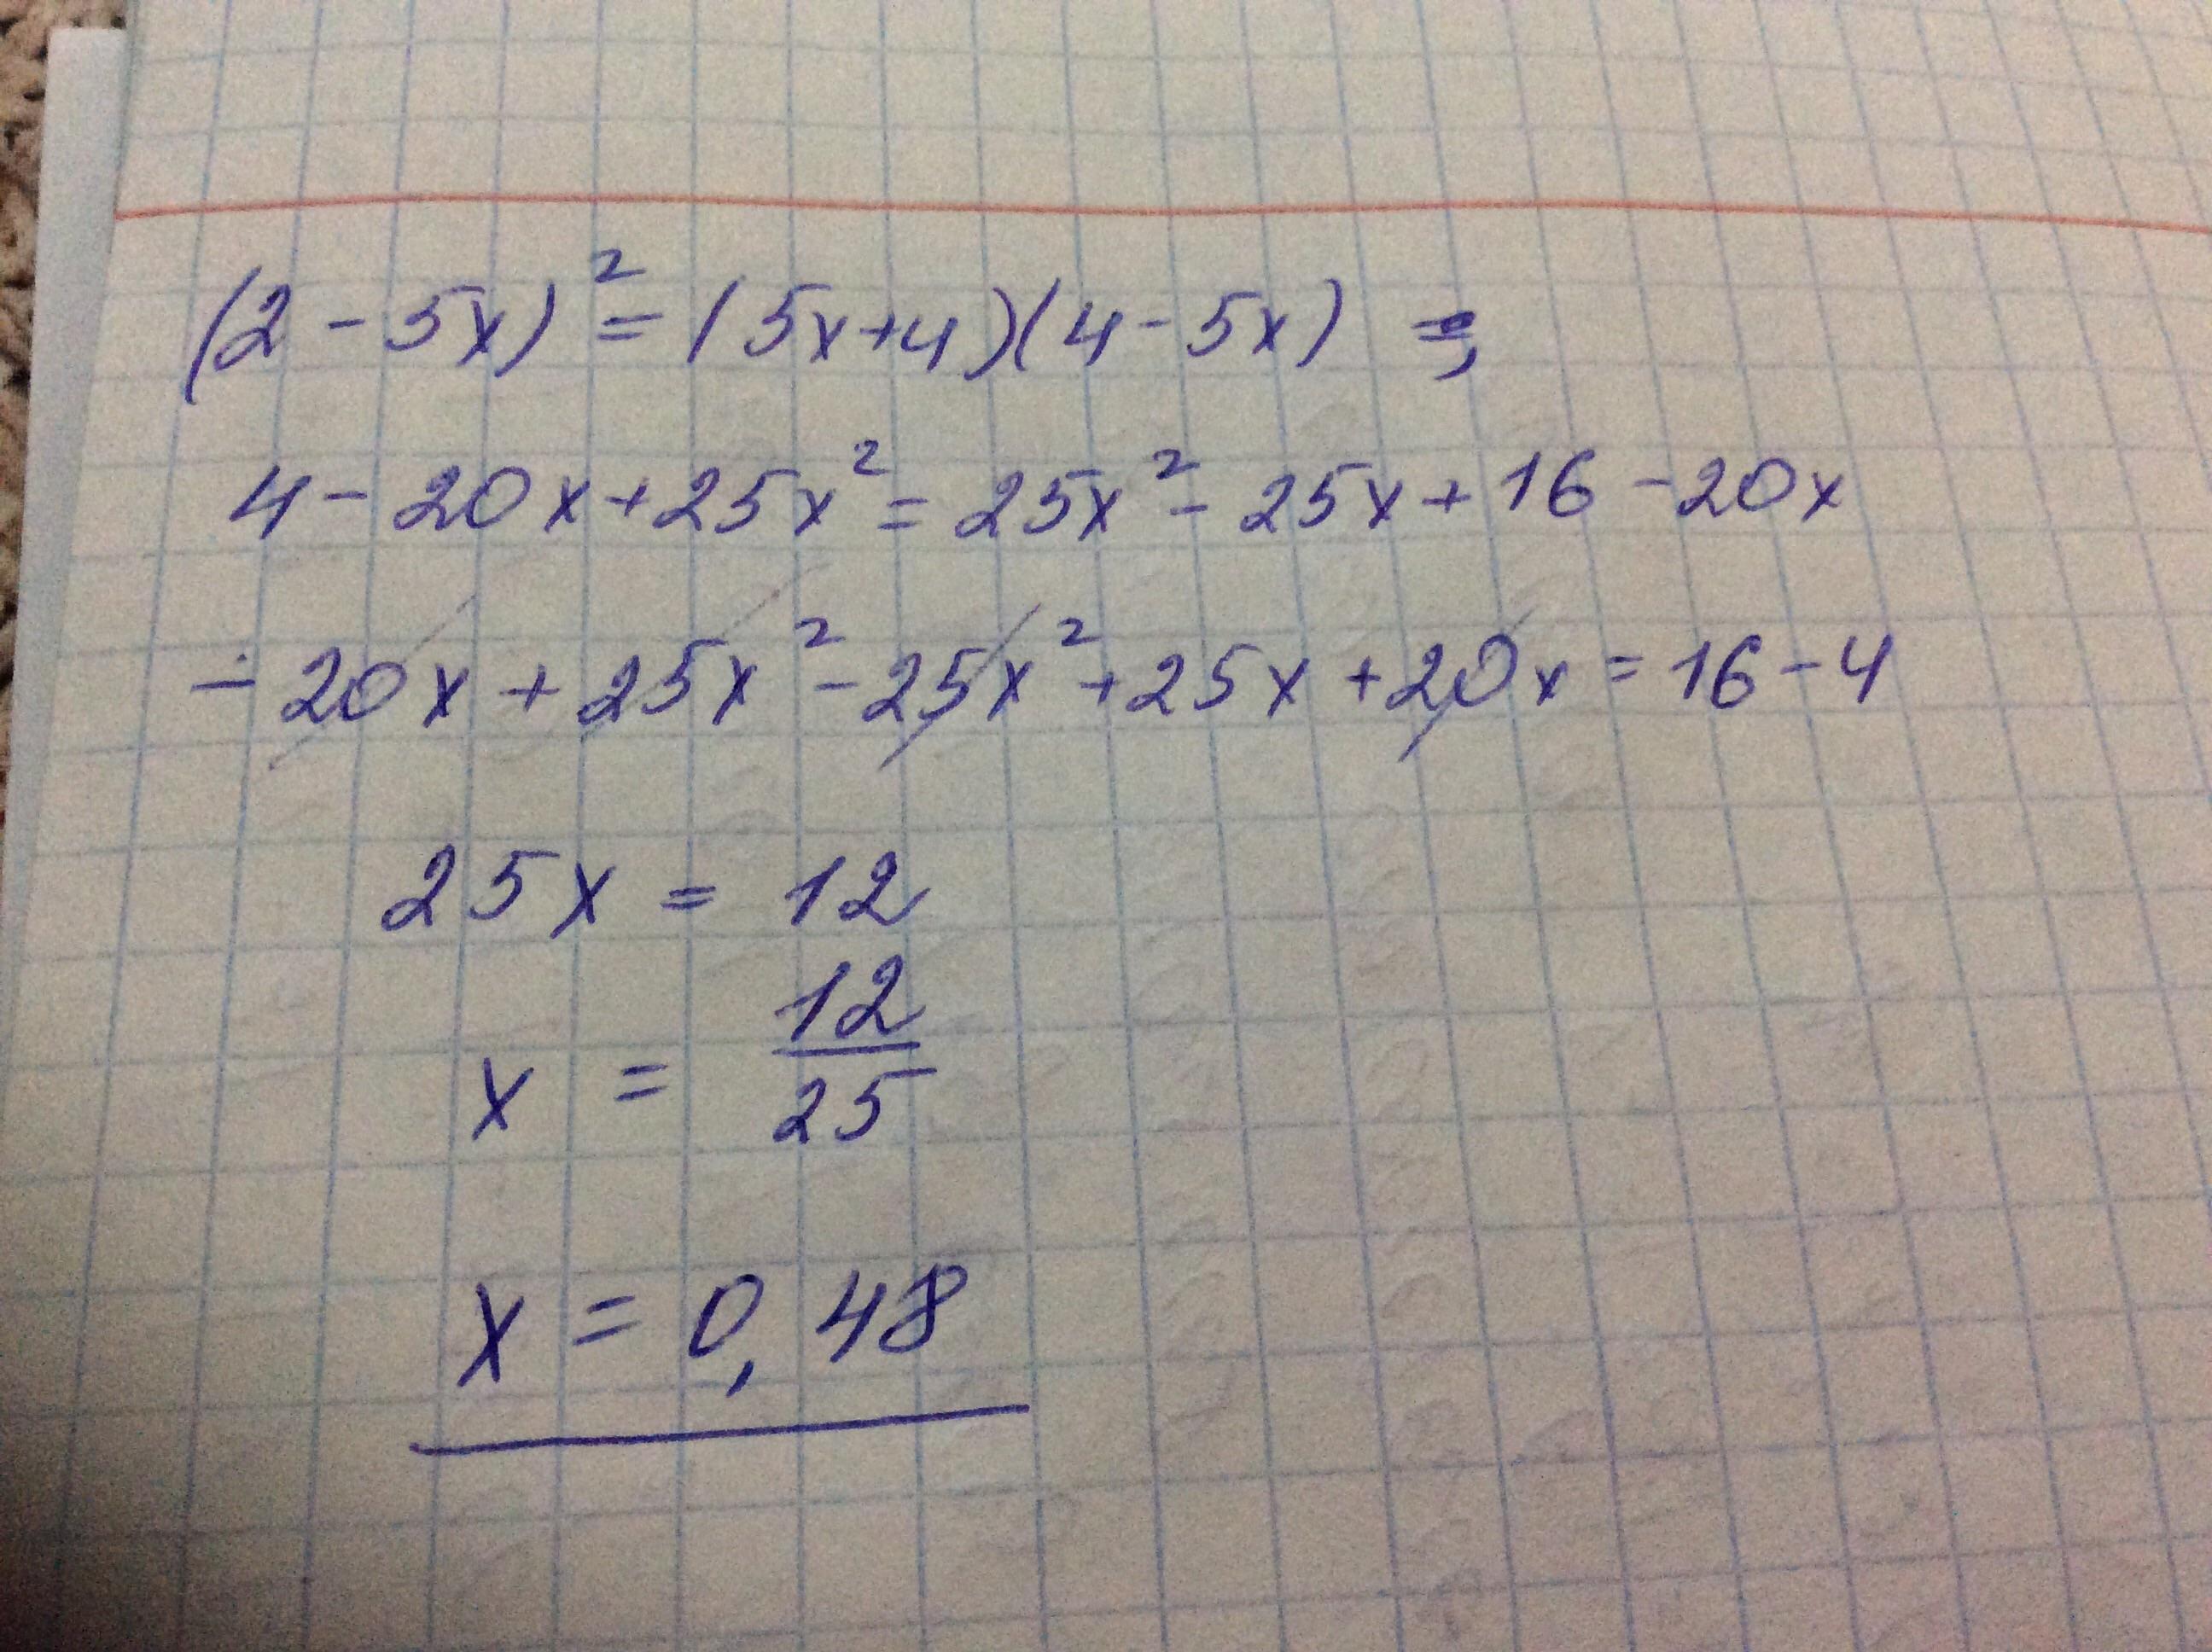 (2 - 5x)² = (5x+4)(4-5x) =;
4 - 20x + 25x² = 25x² - 25x + 16 - 20x
- 20x + 25x² - 25x² + 25x + 20x = 16 - 4
25x = 12
x = 12/25
x = 0,48